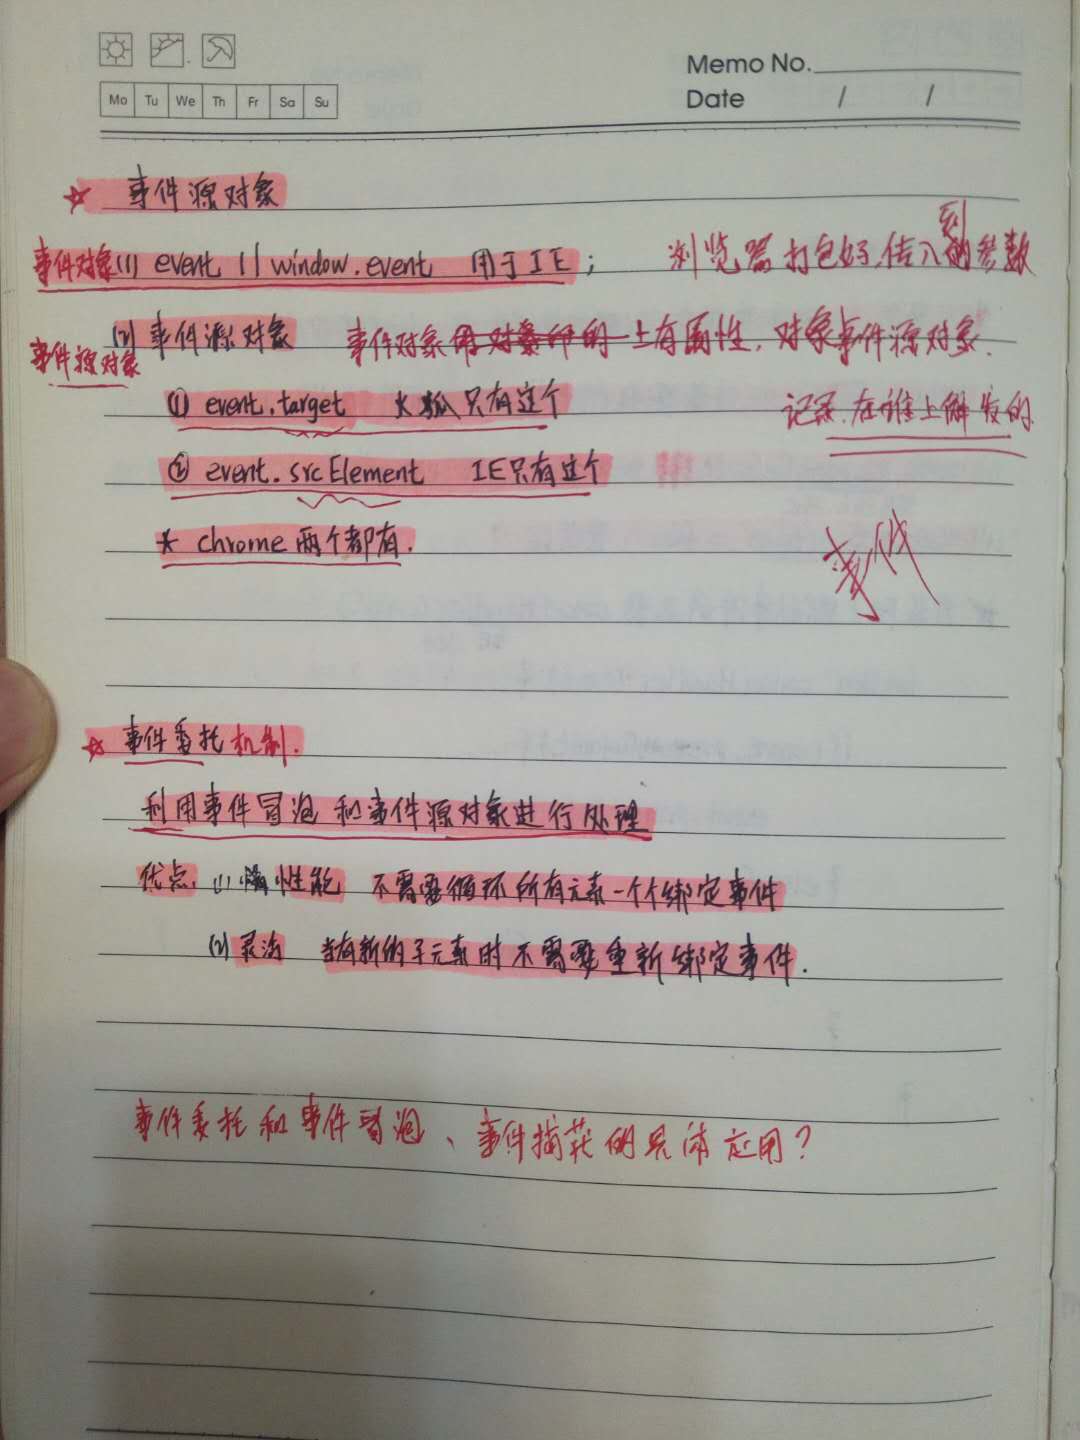 Memo No.
Mo Tu We Th Fr Sa Su
Date / /
☆ 事件源对象
事件对象(1) event || window.event 用于IE; 浏览器打包好,传入到的参数
事件源对象 (2) 事件源对象 事件对象 上有属性,对象事件源对象.
① event.target 火狐只有这个 记录.在谁上触发的
② event.srcElement IE只有这个
* chrome 两个都有.
事件
☆ 事件委托机制.
利用事件冒泡和事件源对象进行处理
优点. (1) 性能 不需要循环所有元素一个个绑定事件
(2) 灵活 当有新的子元素时不需要重新绑定事件.
事件委托和事件冒泡、事件捕获的具体应用?